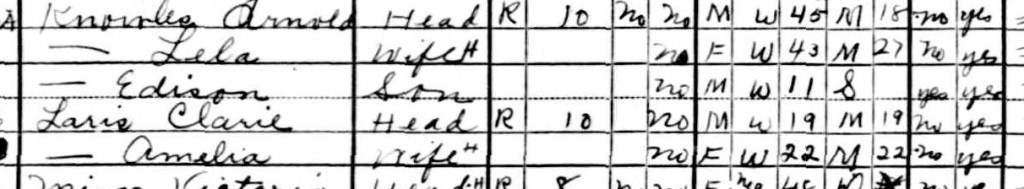 Knowles Arnold Head R 10 no no M W 45 M 18 no yes
— Lela Wife H no F W 43 M 27 no yes
— Edison Son no M W 11 S yes yes
Laris Clarie Head R 10 no M W 19 M 19 no yes
— Amelia Wife H no F W 22 M 22 no yes
Victoria Head H R 8 no F neg